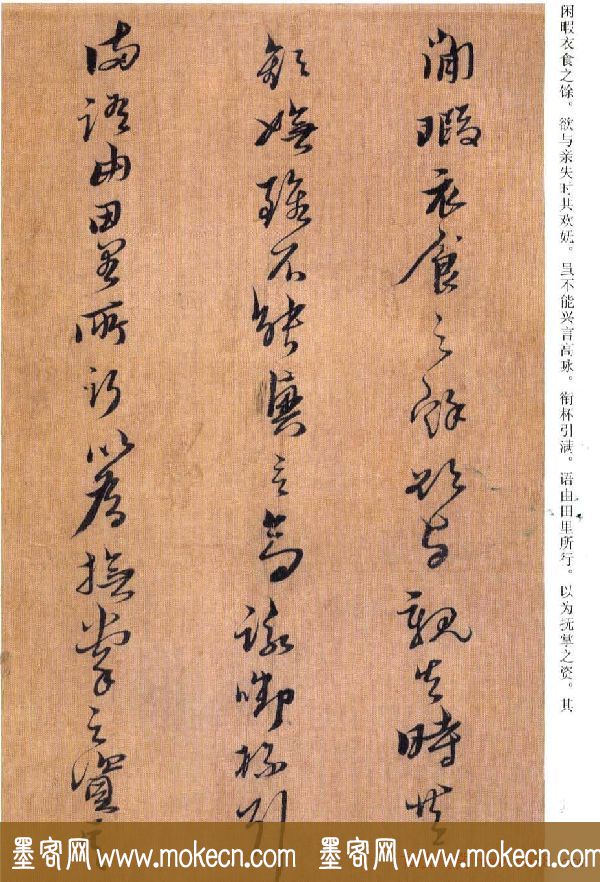 闲暇衣食之馀。欲与亲失时共欢妩。虽不能兴言高咏。衔杯引满。语由田里所行。以为抚掌之资。其
閒暇衣食之餘欲与親失時共
歡嫵雖不能興言高詠啣杯引
滿語由田里所行以為撫掌之資其
墨客网 www.mokecn.com 墨客网 www.mokecn.com